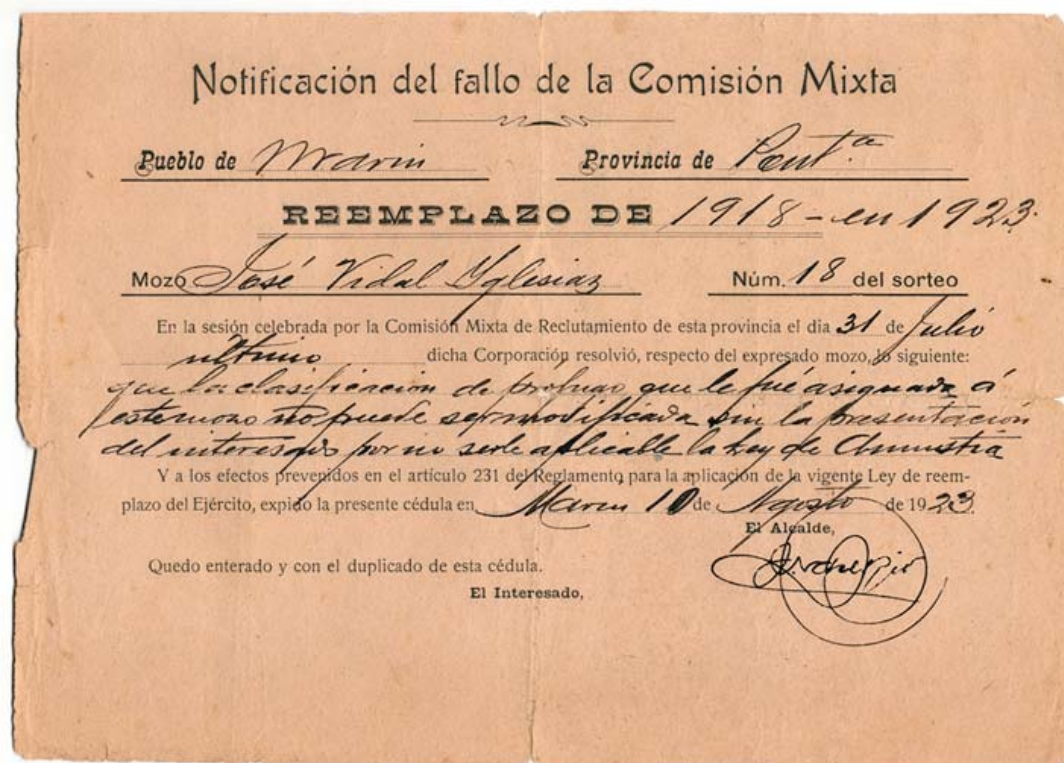 Notificación del fallo de la Comisión Mixta
Pueblo de Marin Provincia de Pont.ª
REEMPLAZO DE 1918 - en 1923.
Mozo José Vidal Yglesias Núm. 18 del sorteo
En la sesión celebrada por la Comisión Mixta de Reclutamiento de esta provincia el dia 31 de Julio
último dicha Corporación resolvió, respecto del expresado mozo, lo siguiente:
que la clasificación de prófugo que le fué asignada á
este mozo no puede ser modificada sin la presentación
del interesado por no serle aplicable la Ley de Amnistia
Y a los efectos prevenidos en el artículo 231 del Reglamento para la aplicación de la vigente Ley de reem-
plazo del Ejército, expido la presente cédula en Marin 10 de Agosto de 1923.
El Alcalde,
Quedo enterado y con el duplicado de esta cédula.
El Interesado,